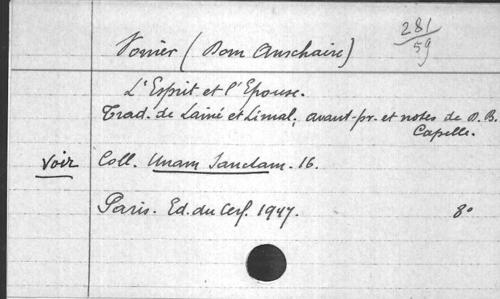 281
59
Vonier (Dom Anschaire)
L'Esprit et l'Epouse.
Trad. de Lainé et Limal; avant-pr. et notes de D. B.
Capelle.
Voir Coll. Unam Sanctam. 16.
Paris. Ed. du Cerf. 1947. 8°